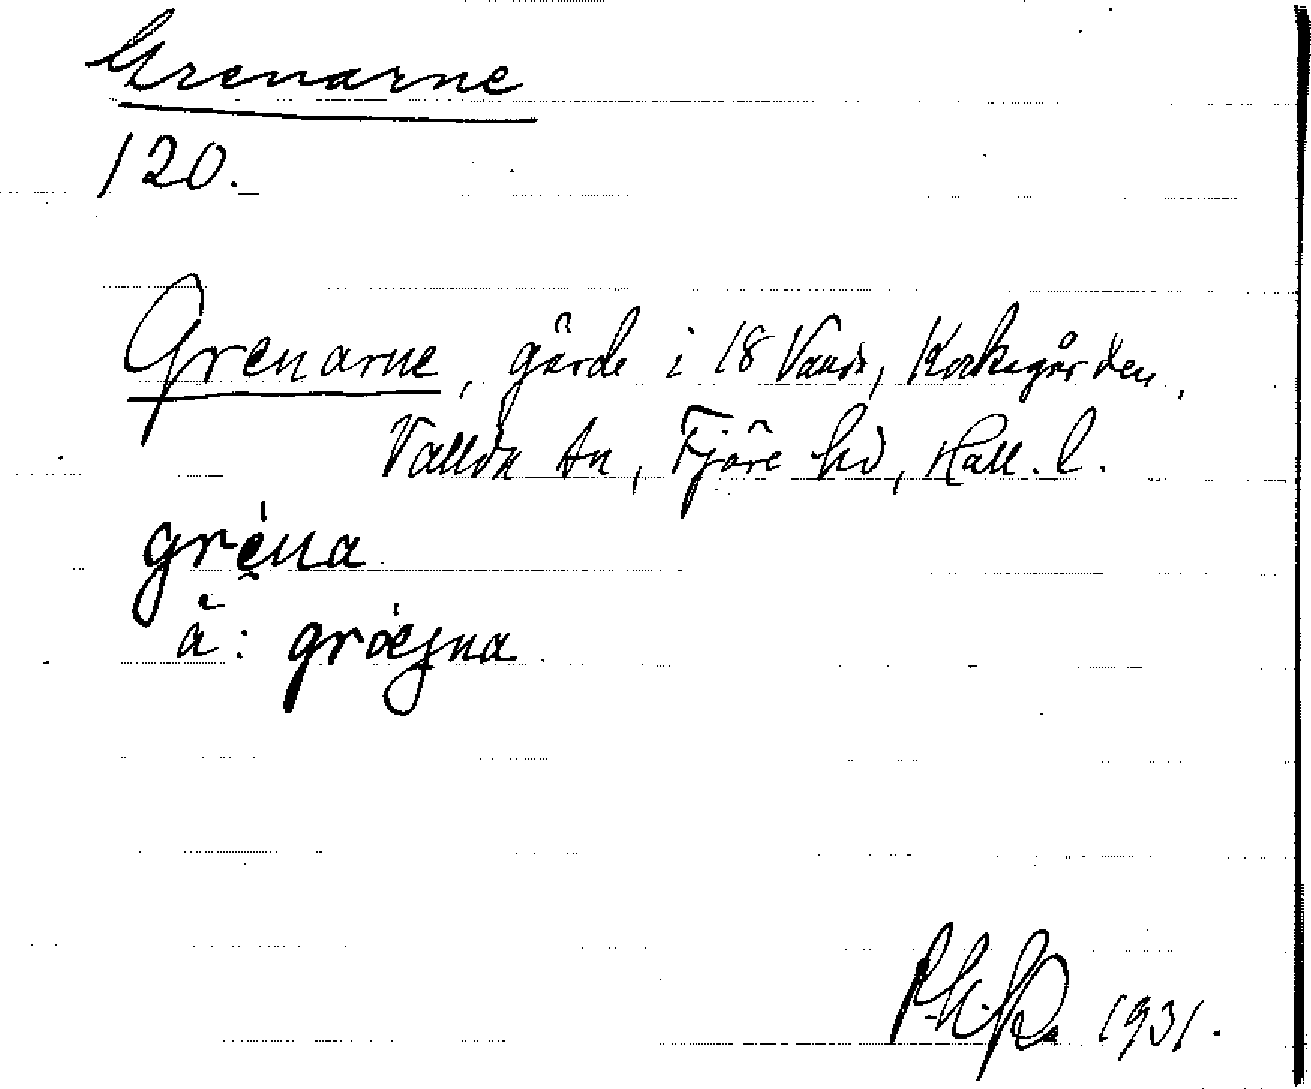 Grenarne
120.
Grenarne, gärde i 18 Vauds, Kockegården,
Vallda sn, Fjäre hd, Hall. l.
gre̤̍na
ä: gro̍ejna
1931.